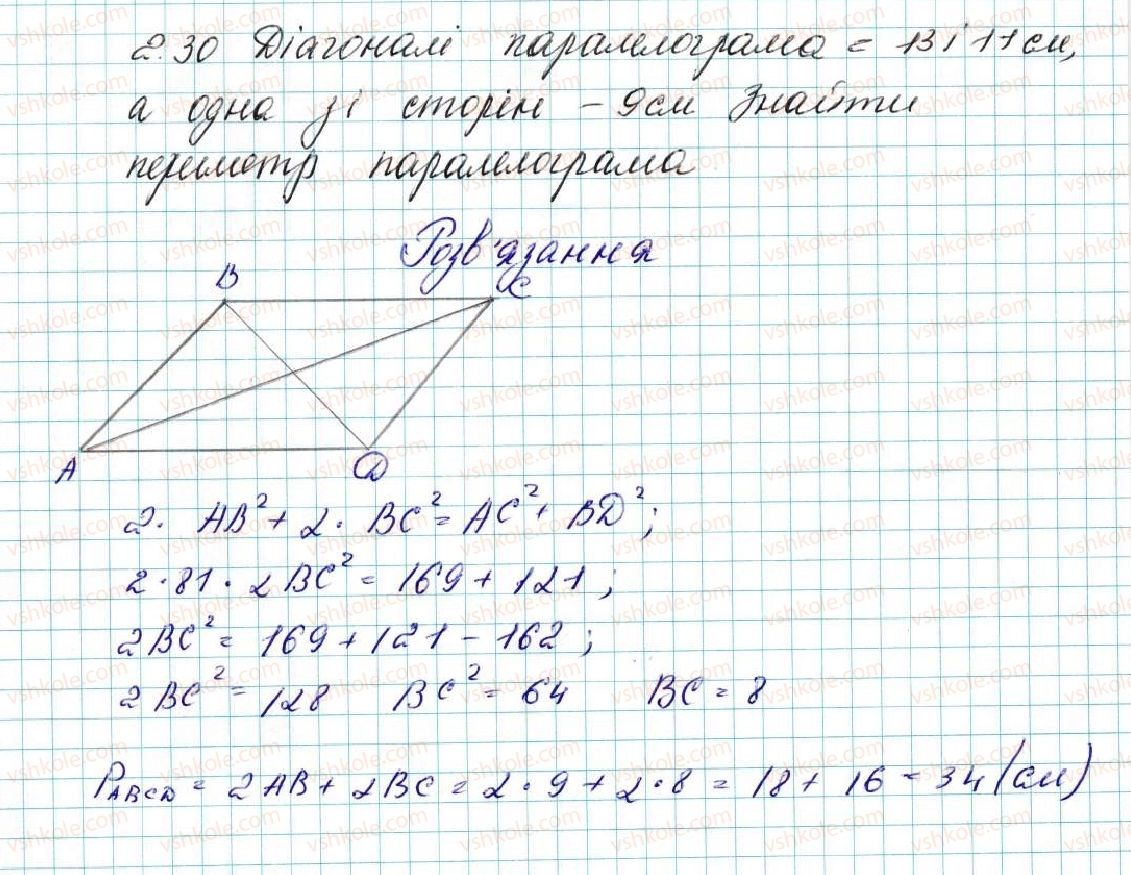 2.30 Діагоналі паралелограма = 13 і 11 см,
а одна зі сторін – 9см Знайти
периметр паралелограма
Розв'язання
B C
A D
2. AB² + 2. BC² = AC² + BD²;
2·81· 2BC² = 169 + 121;
2BC² = 169 + 121 – 162;
2BC² = 128 BC² = 64 BC = 8
P_ABCD = 2AB + 2BC = 2·9 + 2·8 = 18 + 16 = 34 (см)